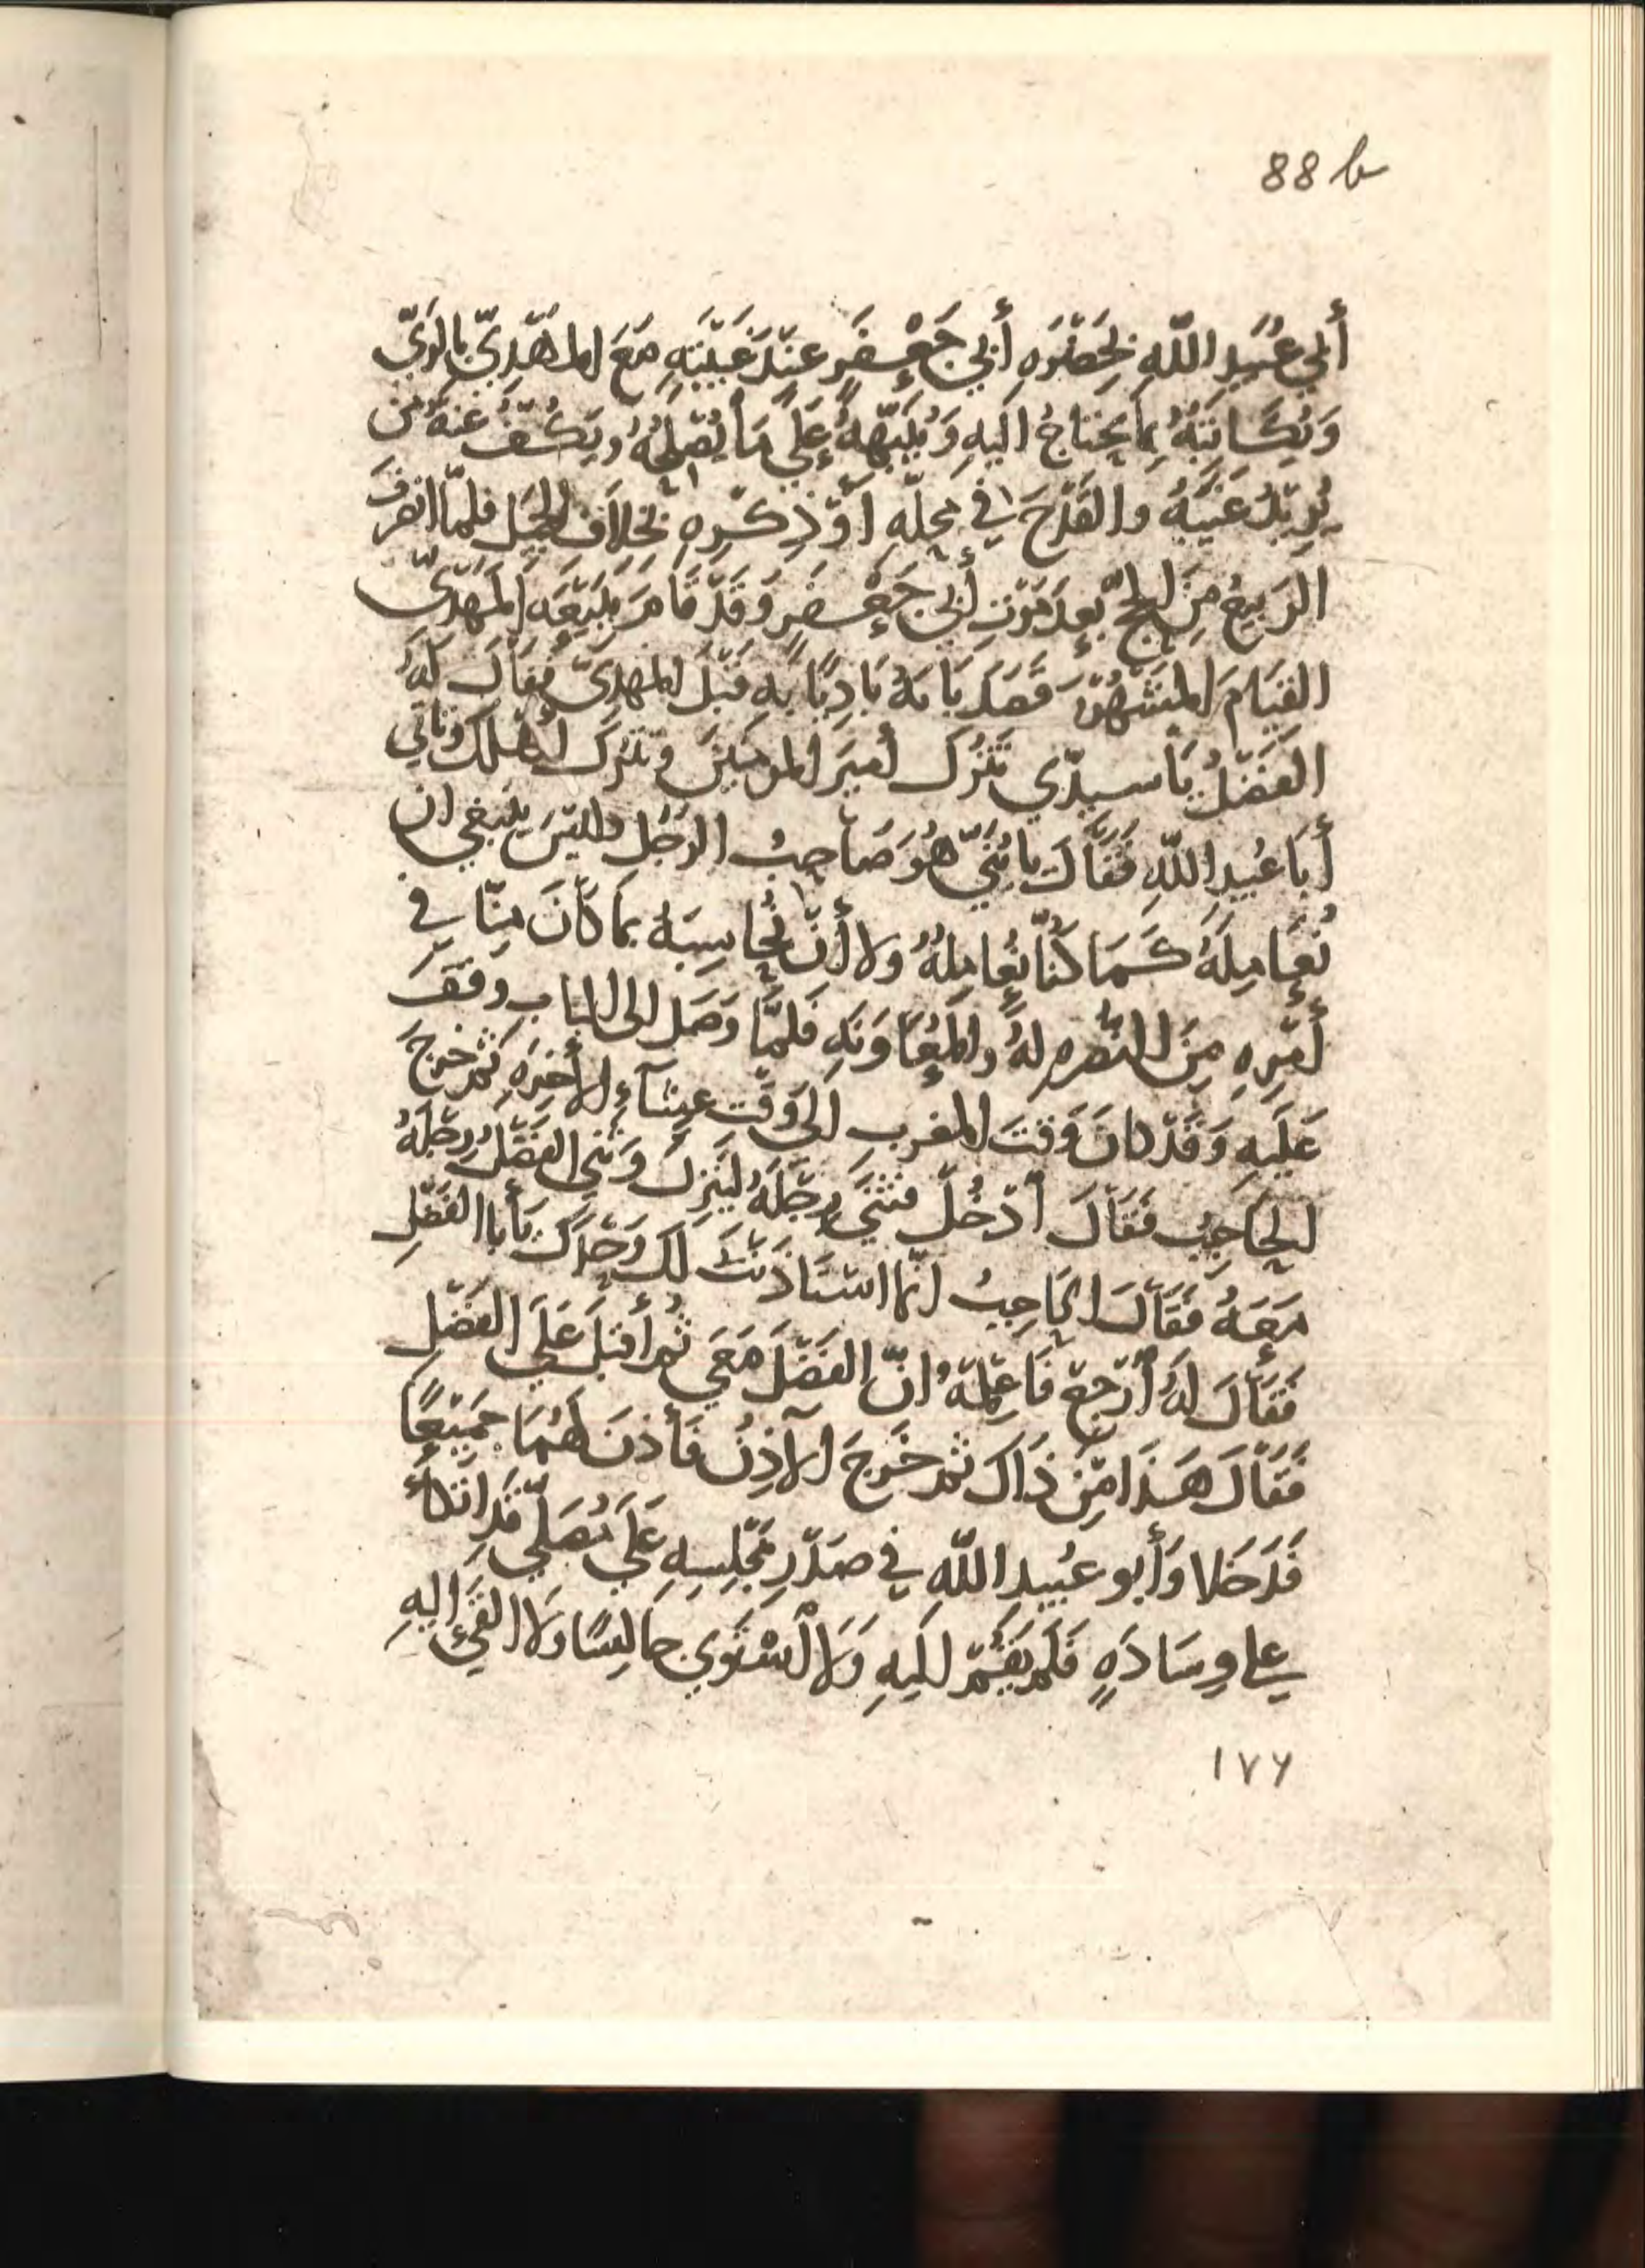 88 b
أَبي عُبَيدِ اللّهِ بِحَضْرَهِ أَبي جَعْفَرٍ عِنْدَ غَيْبَتِهِ مَعَ المَهْدِيّ بِالرَيّ
وَيُكَاتِبُهُ بِمَا يَحتاجُ اليهِ وَيُنَبّهُهُ عَلَى مَا يُصْلِحُهُ ويَكُفُّ عَنهُ مَن
يُرِيْدُ عَيْبَهُ والقَدْحَ في مَحلّهِ أوْ ذِكْرِهِ بخِلاَفِ الجَميل فلمّا انصرفَ
الرَبيعُ مِنَ الحجّ بعدَ مَوْتِ أَبي جَعْفَرٍ وَقَدْ قَامَ بِبَيْعَهِ المَهْدِيّ
القِيَامَ المَشْهُوْرَ قَصَدَ بَابَهُ بَادِئًا بهِ قَبْلَ المهدِيّ فَقَالَ لَهُ
الفَضْلُ يَا سيدّي تَتْرُكَ أميرَ المومنينَ وَتَتْرُكَ مَنْزلَكَ وتأتي
أَبَا عُبيدِ اللّهِ فَقَالَ يا بُنَيّ هُوَ صَاحِبُ الرَجُلِ وليْسَ ينبغي ان
نُعَامِلَهُ كَمَا كُنّا نُعَامِلُهُ ولا أَنْ نُحَاسِبَهُ بما كَانَ مِنّا في
أَمْرِهِ مِنَ النُصْرهِ لهُ والمُعَاوَنَهِ فَلَمّا وَصَلَ الى البَاب وقَفَ
عَلَيهِ وَقَدْ كانَ وَقتَ المغرب الى وَقْتِ عِشآءِ الأَخِرَهِ ثم خرجَ
الحَاجِبُ فَقَالَ أدْخُلْ فثنَى رِجْلَهُ ليَنْزِلَ وَثنى الفَضْلُ رِجْلَهُ
مَعَهُ فَقَالَ الحَاجِبُ انّما استَأذَنْتُ لكَ وَحْدَكَ يا أَبا الفَضْلِ
فَقَالَ لهُ أرْجعْ فَاعْلِمْهُ انّ الفَضْلَ مَعي ثُم أَقبَلَ عَلَى الفَضْلِ
فَقَالَ هَذَا مِنْ ذَاكَ ثُمّ خَرَجَ الآذِنُ فَأَذِنَ لَهُمَا جَميْعًا
فَدَخَلا وَأَبو عبُيدِ اللّهِ في صَدْرِ مَجْلِسِهِ عَلَى مُصَلّى قَدِ اتكأ
على وِسَادَهٍ فَلَم يَقُمْ اليهِ وَلا اسْتَوَى جَالِسًا وَلا القَى اليهِ
١٧٦